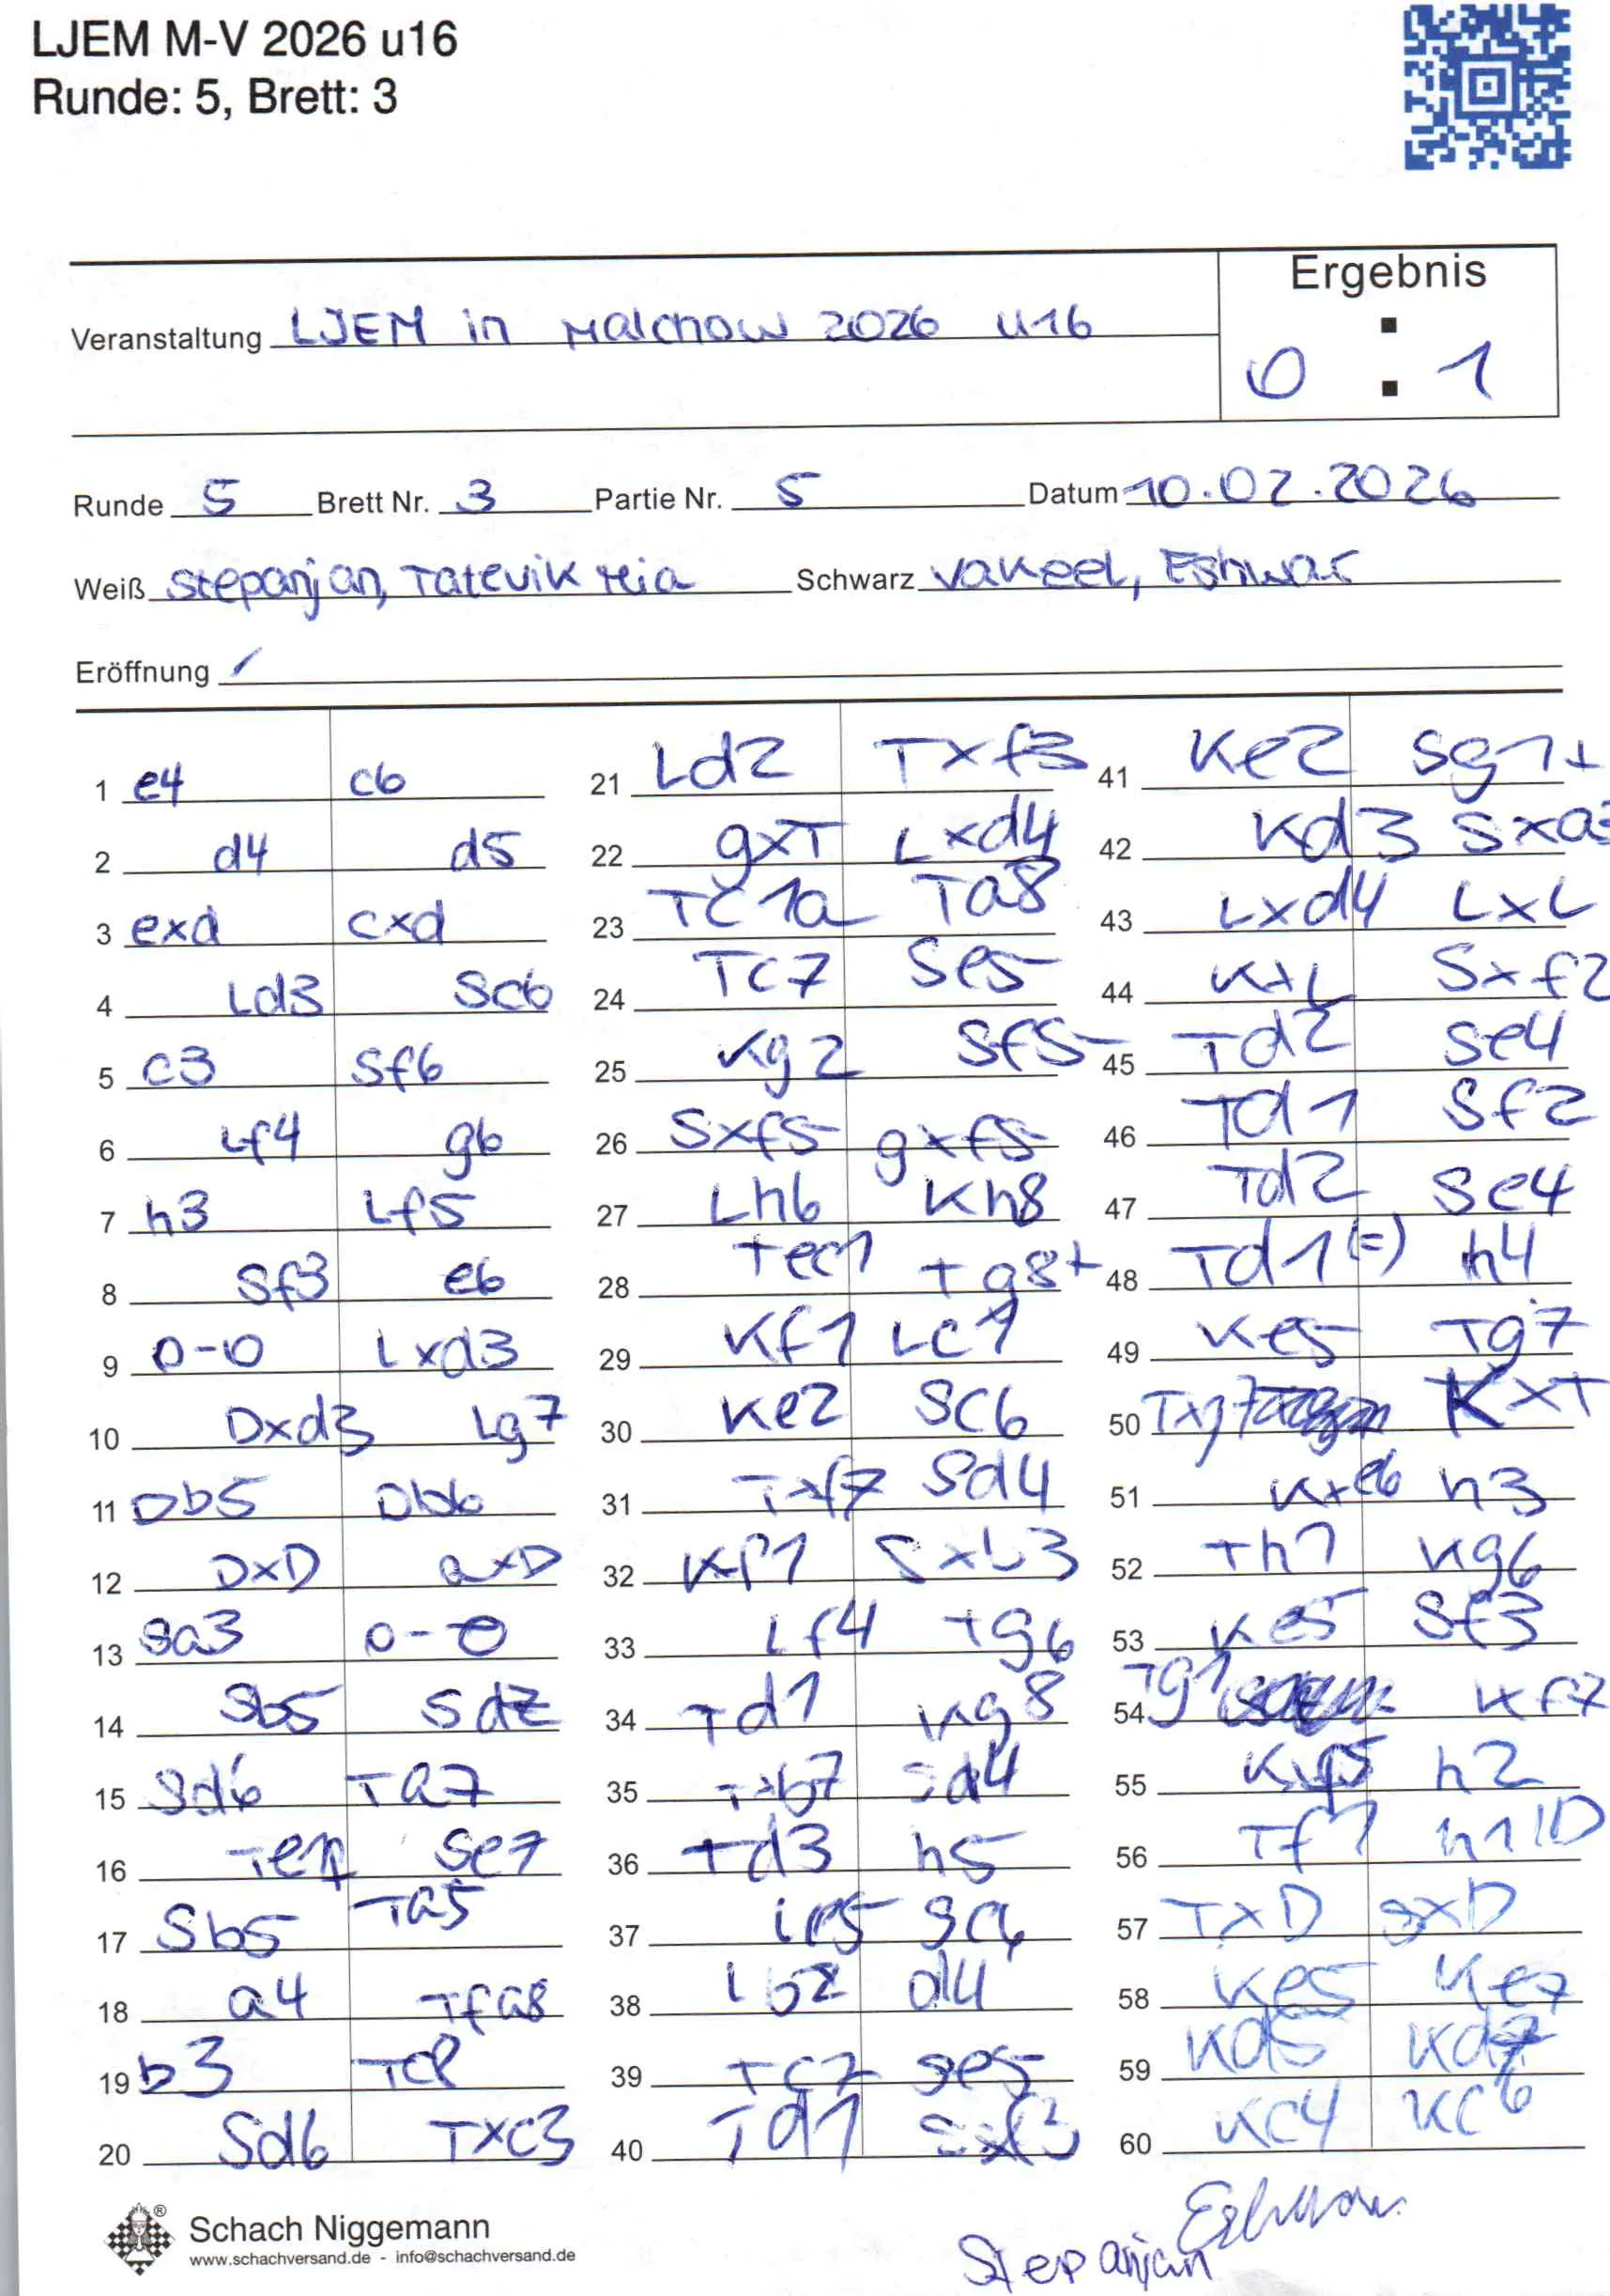 LJEM M-V 2026 u16
Runde: 5, Brett: 3
Ergebnis
Veranstaltung LJEM in Malchow 2026 U16
0 : 1
Runde 5 Brett Nr. 3 Partie Nr. 5 Datum 10.02.2026
Weiß Stepanjan, Tatevik Mia Schwarz Vakeel, Eshwar
Eröffnung /
1 e4 c6
2 d4 d5
3 exd cxd
4 Ld3 Sc6
5 c3 Sf6
6 Lf4 g6
7 h3 Lf5
8 Sf3 e6
9 0-0 Lxd3
10 Dxd3 Lg7
11 Db5 Db6
12 DxD axD
13 Sa3 0-0
14 Sb5 Sd7
15 Sd6 Ta7
16 Te1 Se7
17 Sb5 Ta5
18 a4 Tfa8
19 b3 Tc8
20 Sd6 Txc3
21 Ld2 Txf3
22 gxT Lxd4
23 Tc1a Ta8
24 Tc7 Se5
25 Kg2 Sf5
26 Sxf5 gxf5
27 Lh6 Kh8
28 Tec1 Tg8+
29 Kf1 Lc1
30 Ke2 Sc6
31 Txf7 Sd4
32 Kf1 Sxb3
33 Lf4 Tg6
34 Td1 Kg8
35 Txb7 Sd4
36 Td3 h5
37 Le5 Sc6
38 Lb2 d4
39 Tc7 Se5
40 Td1 Sxf3
41 Ke2 Sg1+
42 Kd3 Sxa3
43 Lxd4 LxL
44 KxL Sxf2
45 Td2 Se4
46 Td1 Sf2
47 Td2 Se4
48 Td1(=) h4
49 Ke5 Tg7
50 Txg7 KxT
51 Kxe6 h3
52 Th1 Kg6
53 Ke5 Sf3
54 Tg1 Kf7
55 Kxf5 h2
56 Tf1 h1D
57 TxD SxD
58 Ke5 Ke7
59 Kd5 Kd7
60 Kc4 Kc6
Schach Niggemann
www.schachversand.de - info@schachversand.de
Eshwar
Stepanjan